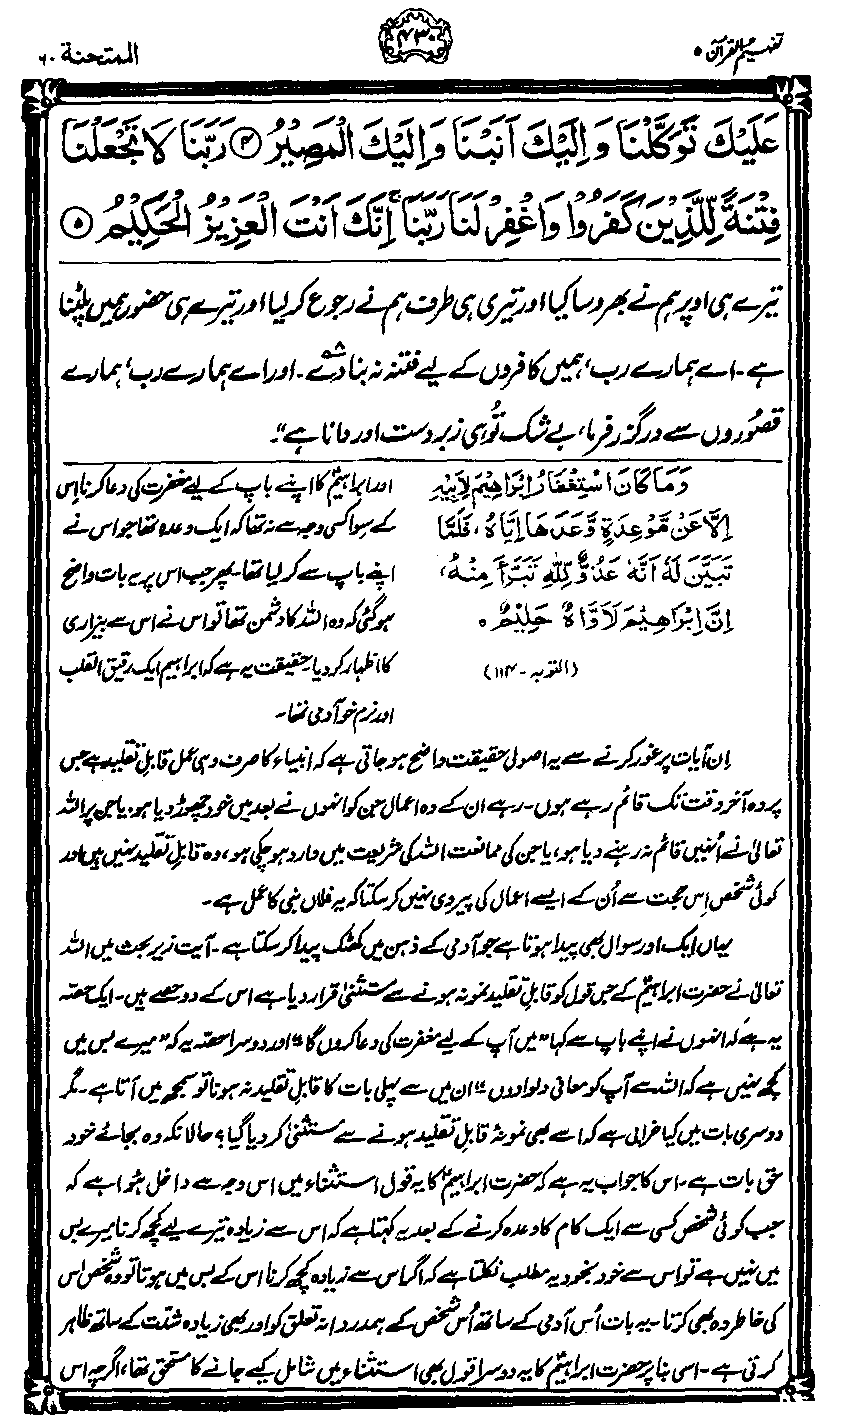 تفہیم القرآن ۵
۴۳۰
الممتحنۃ ۶۰
عَلَيْكَ تَوَكَّلْنَا وَاِلَيْكَ اَنَبْنَا وَاِلَيْكَ الْمَصِيْرُ ۝۴ رَبَّنَا لَا تَجْعَلْنَا
فِتْنَةً لِّلَّذِيْنَ كَفَرُوْا وَاغْفِرْ لَنَا رَبَّنَا ۚ اِنَّكَ اَنْتَ الْعَزِيْزُ الْحَكِيْمُ ۝۵
تیرے ہی اوپر ہم نے بھروسا کیا اور تیری ہی طرف ہم نے رجوع کر لیا اور تیرے ہی حضور ہمیں پلٹنا
ہے۔ اے ہمارے رب، ہمیں کافروں کے لیے فتنہ نہ بنا دے۸؎۔ اور اے ہمارے رب، ہمارے
قصوروں سے درگزر فرما، بے شک تُو ہی زبردست اور دانا ہے“۔
وَمَا كَانَ اسْتِغْفَارُ اِبْرَاهِيْمَ لِاَبِيْهِ
اِلَّا عَنْ مَّوْعِدَةٍ وَّعَدَهَا اِيَّاهُ، فَلَمَّا
تَبَيَّنَ لَهٗ اَنَّهٗ عَدُوٌّ لِّلّٰهِ تَبَرَّاَ مِنْهُ،
اِنَّ اِبْرَاهِيْمَ لَاَوَّاهٌ حَلِيْمٌ ہ
(التوبہ۔ ۱۱۴)
اور ابراہیمؑ کا اپنے باپ کے لیے مغفرت کی دعا کرنا اِس
کے سوا کسی وجہ سے نہ تھا کہ ایک وعدہ تھا جو اس نے
اپنے باپ سے کر لیا تھا۔ پھر جب اس پر یہ بات واضح
ہو گئی کہ وہ اللہ کا دشمن تھا تو اس نے اس سے بیزاری
کا اظہار کر دیا۔ حقیقت یہ ہے کہ ابراہیم ایک رقیق القلب
اور نرم خو آدمی تھا۔
ان آیات پر غور کرنے سے یہ اصولی حقیقت واضح ہو جاتی ہے کہ انبیاء کا صرف وہی عمل قابلِ تقلید ہے جس
پر وہ آخر وقت تک قائم رہے ہوں۔ رہے ان کے وہ اعمال جن کو انہوں نے بعد میں خود چھوڑ دیا ہو، یا جن پر اللہ
تعالیٰ نے اُنہیں قائم نہ رہنے دیا ہو، یا جن کی ممانعت اللہ کی شریعت میں وارد ہو چکی ہو، وہ قابلِ تقلید نہیں ہیں اور
کوئی شخص اِس حجت سے اُن کے ایسے اعمال کی پیروی نہیں کر سکتا کہ یہ فلاں نبی کا عمل ہے۔
یہاں ایک اور سوال بھی پیدا ہوتا ہے جو آدمی کے ذہن میں کھٹک پیدا کر سکتا ہے۔ آیت زیر بحث میں اللہ
تعالیٰ نے حضرت ابراہیمؑ کے جس قول کو قابلِ تقلید نمونہ ہونے سے مستثنیٰ قرار دیا ہے اس کے دو حصے ہیں۔ ایک حصہ
یہ ہے کہ انہوں نے اپنے باپ سے کہا ”میں آپ کے لیے مغفرت کی دعا کروں گا“ اور دوسرا حصہ یہ کہ ”میرے بس میں
کچھ نہیں ہے کہ اللہ سے آپ کو معافی دلوا دوں“ ان میں سے پہلی بات کا قابلِ تقلید نہ ہونا تو سمجھ میں آتا ہے۔ مگر
دوسری بات میں کیا خرابی ہے کہ اسے بھی نمونۂ قابلِ تقلید ہونے سے مستثنیٰ کر دیا گیا؟ حالانکہ وہ بجائے خود
حق بات ہے۔ اس کا جواب یہ ہے کہ حضرت ابراہیمؑ کا یہ قول استثناء میں اس وجہ سے داخل ہُوا ہے کہ
جب کوئی شخص کسی سے ایک کام کا وعدہ کرنے کے بعد یہ کہتا ہے کہ اس سے زیادہ تیرے لیے کچھ کرنا میرے بس
میں نہیں ہے تو اس سے خود بخود یہ مطلب نکلتا ہے کہ اگر اس سے زیادہ کچھ کرنا اس کے بس میں ہوتا تو وہ شخص اس
کی خاطر وہ بھی کرتا۔ یہ بات اُس آدمی کے ساتھ اُس شخص کے ہمدردانہ تعلق کو اور بھی زیادہ شدت کے ساتھ ظاہر
کرتی ہے۔ اسی بنا پر حضرت ابراہیمؑ کا یہ دوسرا قول بھی استثناء میں شامل کیے جانے کا مستحق تھا، اگرچہ اس